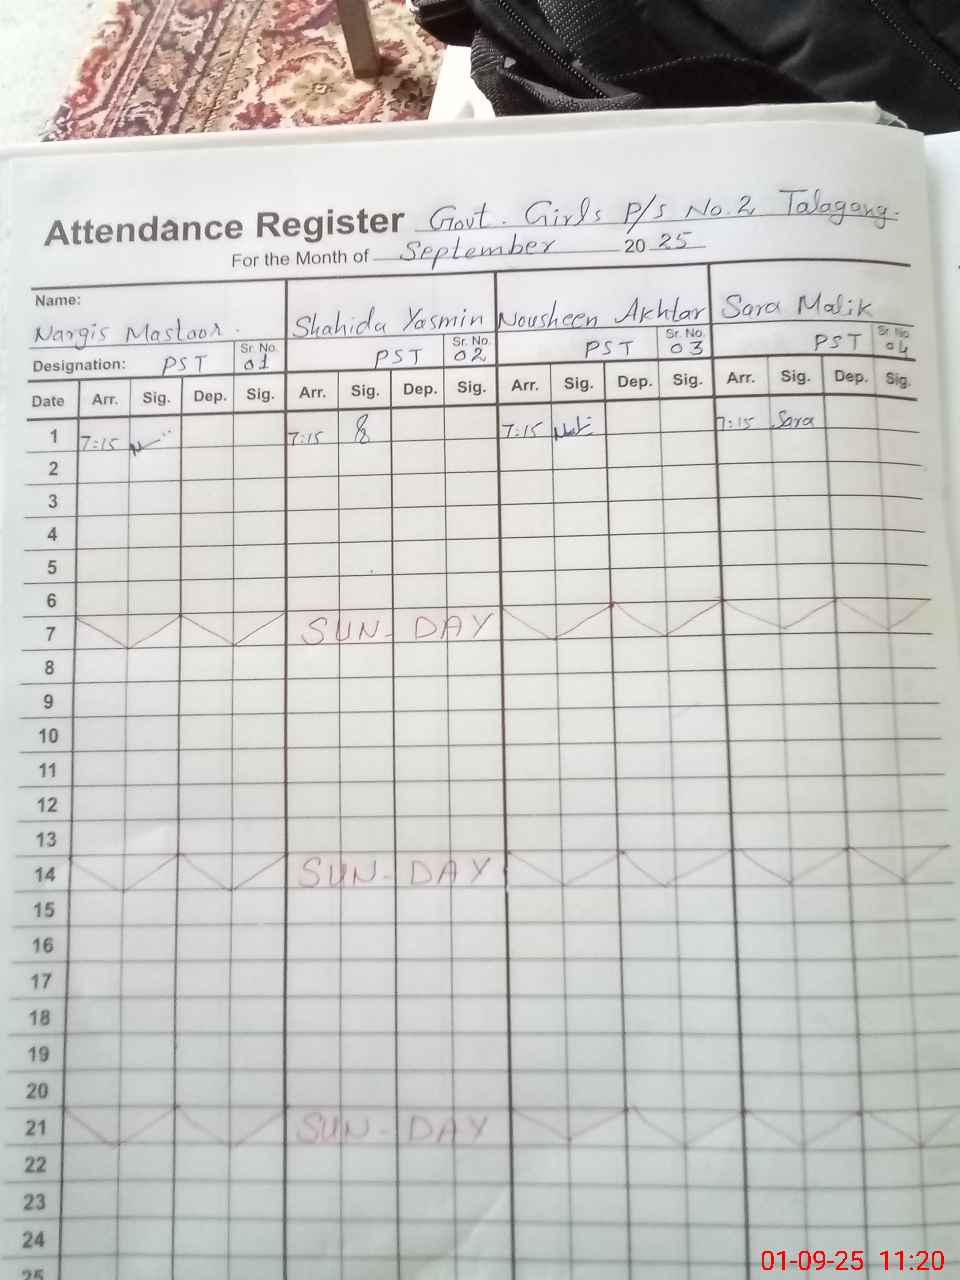 Attendance Register Govt. Girls P/S No.2 Talagang.
For the Month of September 2025
Name:
Nargis Mastoor. Shahida Yasmin Nousheen Akhtar Sara Malik
Designation: PST Sr. No. 01 PST Sr. No. 02 PST Sr. No. 03 PST Sr. No. 04
Date Arr. Sig. Dep. Sig. Arr. Sig. Dep. Sig. Arr. Sig. Dep. Sig. Arr. Sig. Dep. Sig.
1 7:15 7:15 7:15 7:15 Sara
2
3
4
5
6
7 SUN-DAY
8
9
10
11
12
13
14 SUN-DAY
15
16
17
18
19
20
21 SUN-DAY
22
23
24
25
01-09-25 11:20